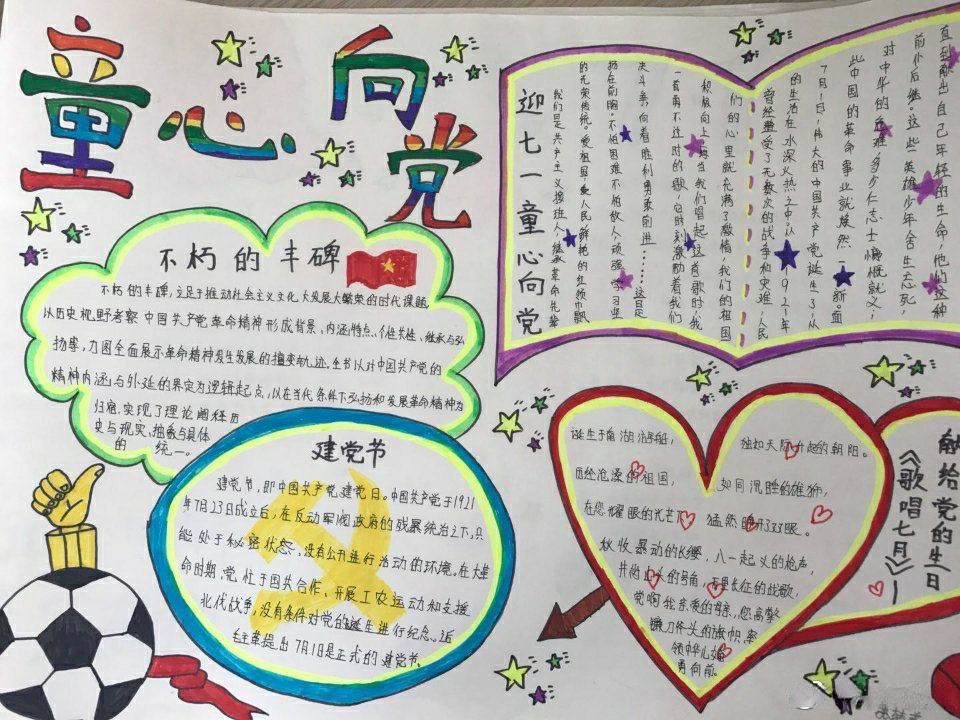 童心向党
不朽的丰碑
不朽的丰碑,立足于推动社会主义文化大发展大繁荣的时代课题,
从历史视野考察中国共产党革命精神形成背景、内涵特点、个性共性、继承与弘
扬等,力图全面展示革命精神发生发展的擅变轨迹。全书以对中国共产党的
精神内涵与外延的界定为逻辑起点,以在当代条件下弘扬和发展革命精神为
归宿,实现了理论阐释历
史与现实、抽象与具体
的统一。
建党节
建党节,即中国共产党建党日。中国共产党于1921
年7月23日成立后,在反动军阀政府的残暴统治之下,只
能处于秘密状态,没有公开进行活动的环境。在大革
命时期,党忙于国共合作、开展工农运动和支援
北伐战争,没有条件对党的诞生进行纪念。
毛主席提出7月1日是正式的建党节。
迎七一童心向党
我们是共产主义接班人,继承革命先辈
的光荣传统。爱祖国,爱人民,鲜艳的红领巾飘
扬在前胸。不怕困难不怕敌人顽强学习坚
决斗争,向着胜利勇敢前进……这是
一首永不过时的歌,它时刻激励着我们
积极向上,每当我们唱起这首歌时,我
们的心里就充满了激情,我们的祖国
曾经经受了无数次的战争和灾难,人民
的生活在水深火热之中,从1921年
7月1日,伟大的中国共产党诞生了,从
此中国的革命事业就焕然一新。面
对中华的危难,多少仁志士慷慨就义,
前仆后继。这些英雄少年舍生忘死,
直到献出自己年轻的生命,他们这种
献给党的生日
《歌唱七月》
诞生于南湖的红船,
独如天际升起的朝阳。
历经沧桑的祖国,
如同沉睡的雄狮,
在您耀眼的光芒下
猛然睁开双眼。
秋收暴动的长缨,八一起义的枪声,
井冈山头的号角,万里长征的战歌,
党啊我亲爱的母亲,您高擎
镰刀斧头的旗帜,率
领中华儿女
勇向前。